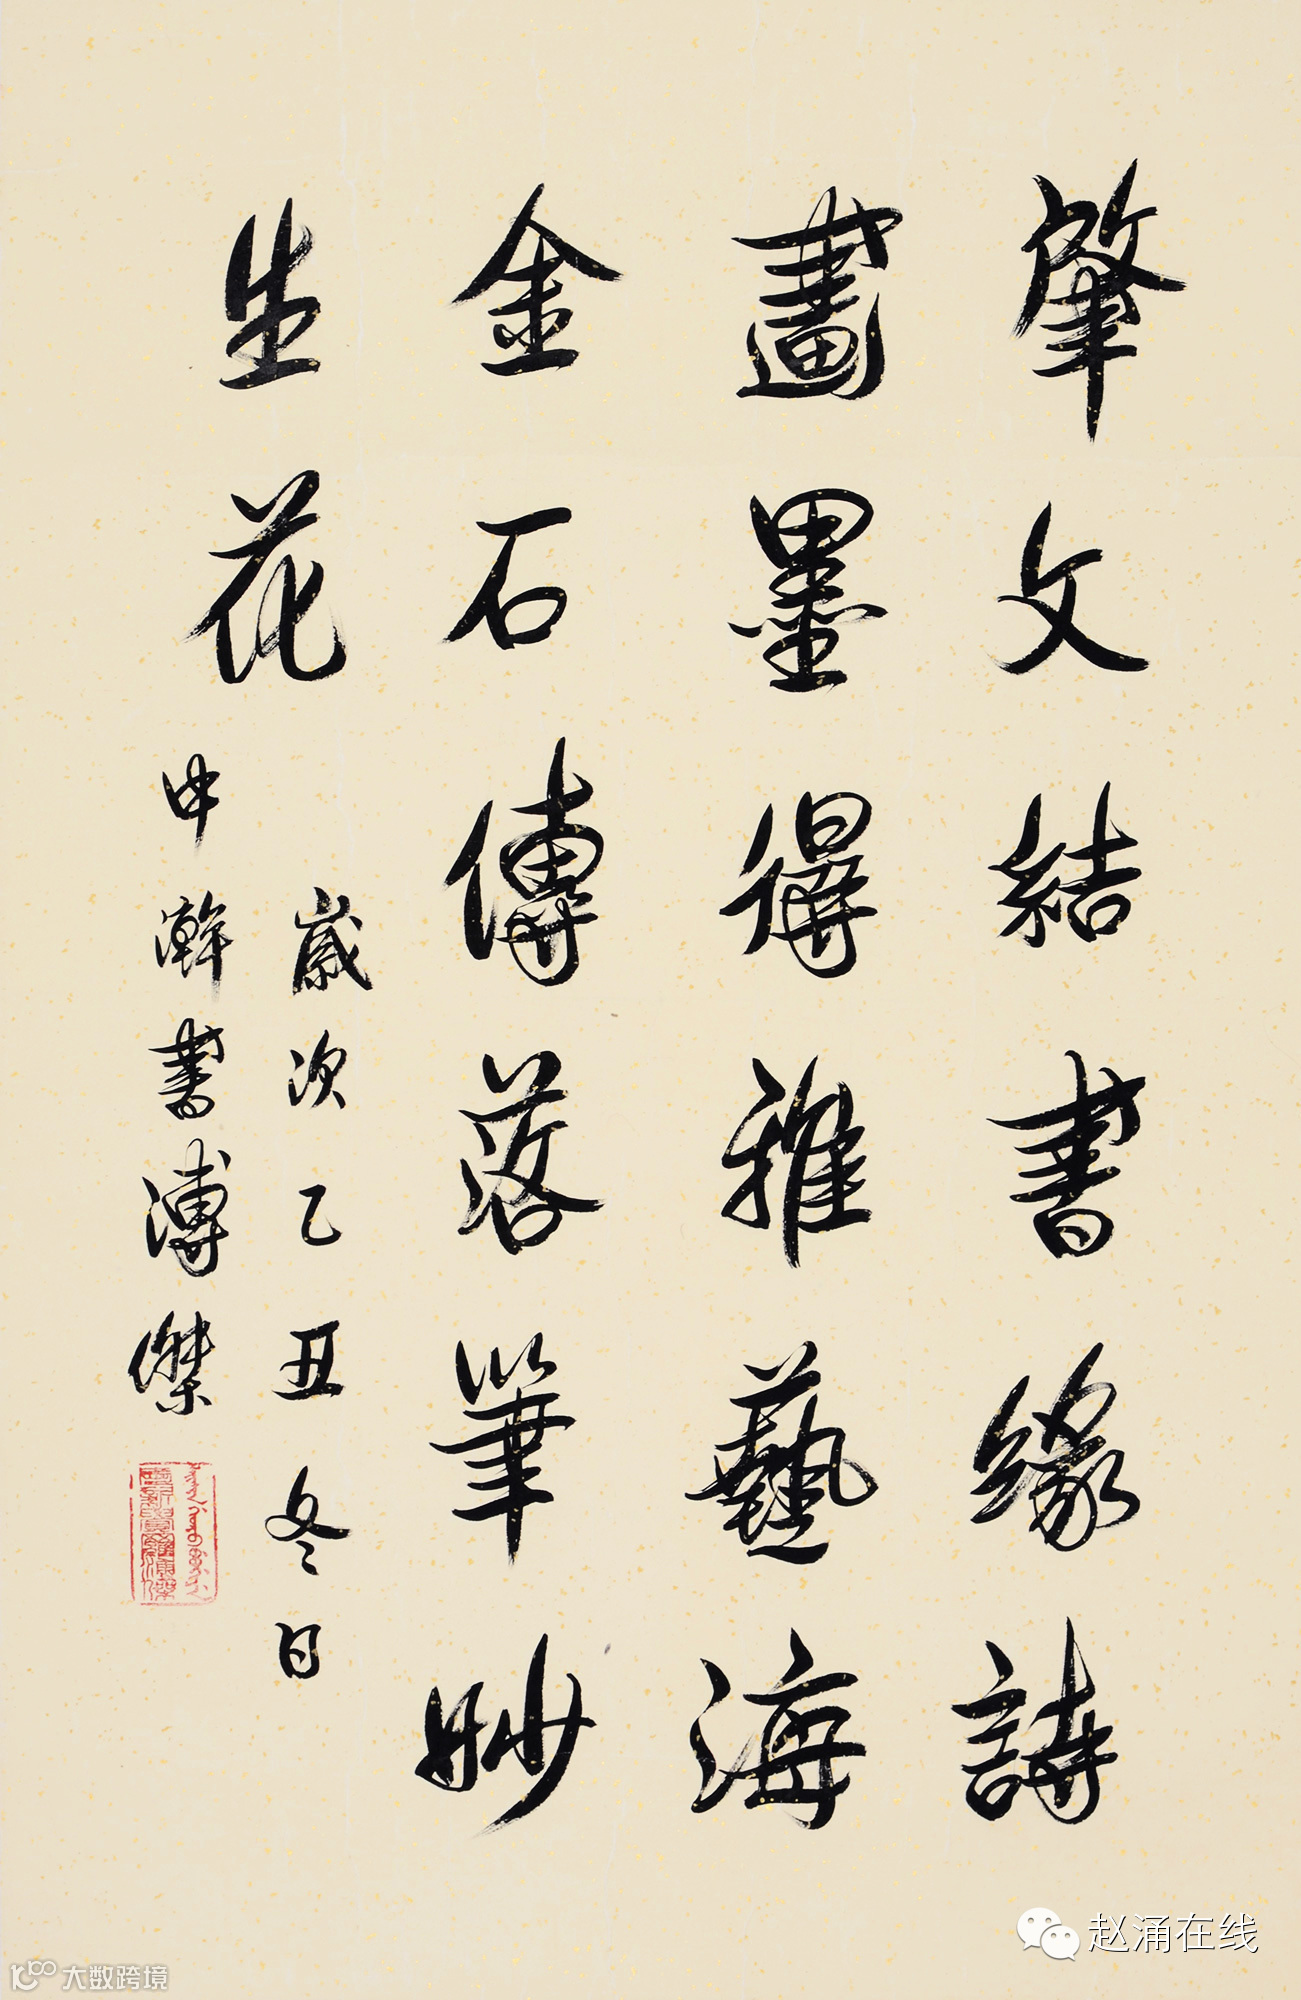 肇文結書緣詩
畫墨得雅藝海
金石傳落筆妙
生花
歲次乙丑冬日
申瀚書溥傑
赵涌在线
大数跨境